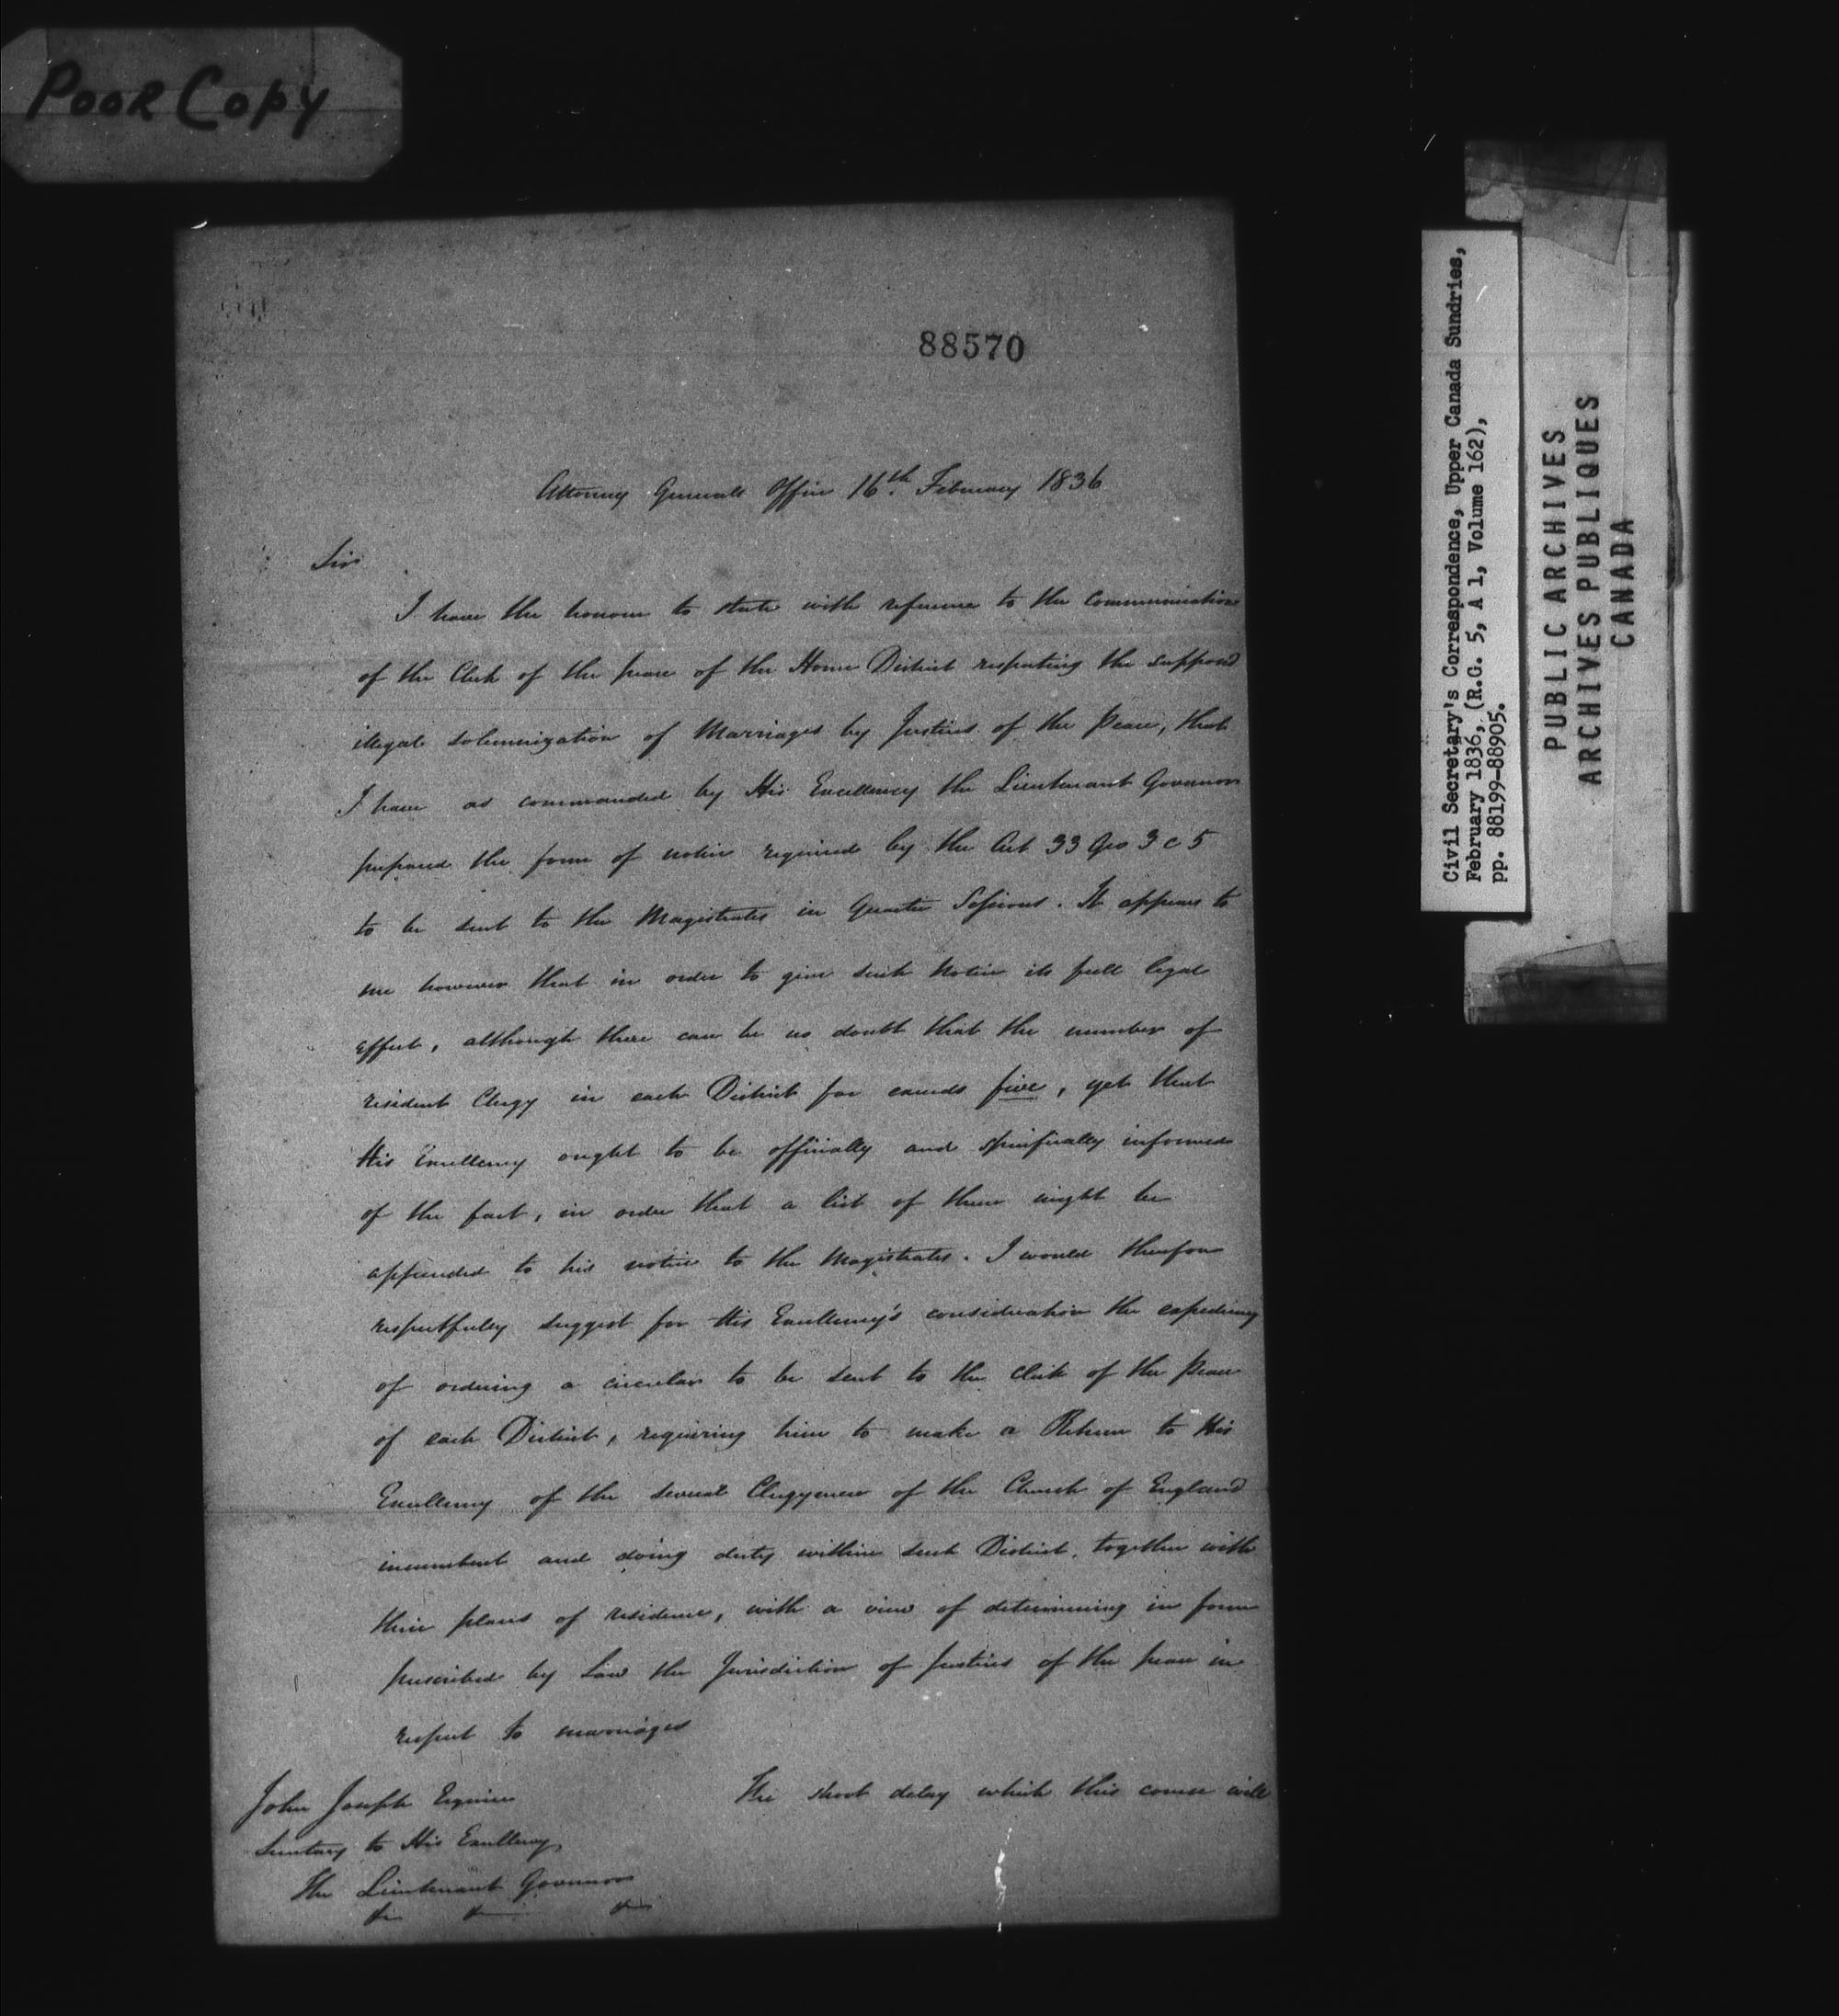 Poor Copy
88570
Attorney Generals Office 16th. February 1836
Sir
I have the honour to state with reference to the Communication
of the Clerk of the peace of the Home District respecting the supposed
illegal solemnization of Marriages by Justices of the Peace, that
I have as commanded by His Excellency the Lieutenant Governor
prepared the form of notice required by the Act 33 Geo 3 c 5
to be sent to the Magistrates in Quarter Sessions. It appears to
me however that in order to give such Notice its full legal
effect, although there can be no doubt that the number of
resident Clergy in each District far exceeds five, yet that
His Excellency ought to be officially and specifically informed
of the fact, in order that a list of them might be
appended to his notice to the Magistrates. I would therefore
respectfully suggest for His Excellency's consideration the expediency
of ordering a circular to be sent to the Clerk of the Peace
of each District, requiring him to make a Return to His
Excellency of the several Clergymen of the Church of England
incumbent and doing duty within such District, together with
their places of residence, with a view of determining in form
prescribed by Law the Jurisdiction of Justices of the peace in
respect to marriages
The short delay which this course will
John Joseph Esquire
Secretary to His Excellency
The Lieutenant Governor
&c &c &c
Civil Secretary's Correspondence, Upper Canada Sundries,
February 1836, (R.G. 5, A 1, Volume 162),
pp. 88199-88905.
PUBLIC ARCHIVES
ARCHIVES PUBLIQUES
CANADA